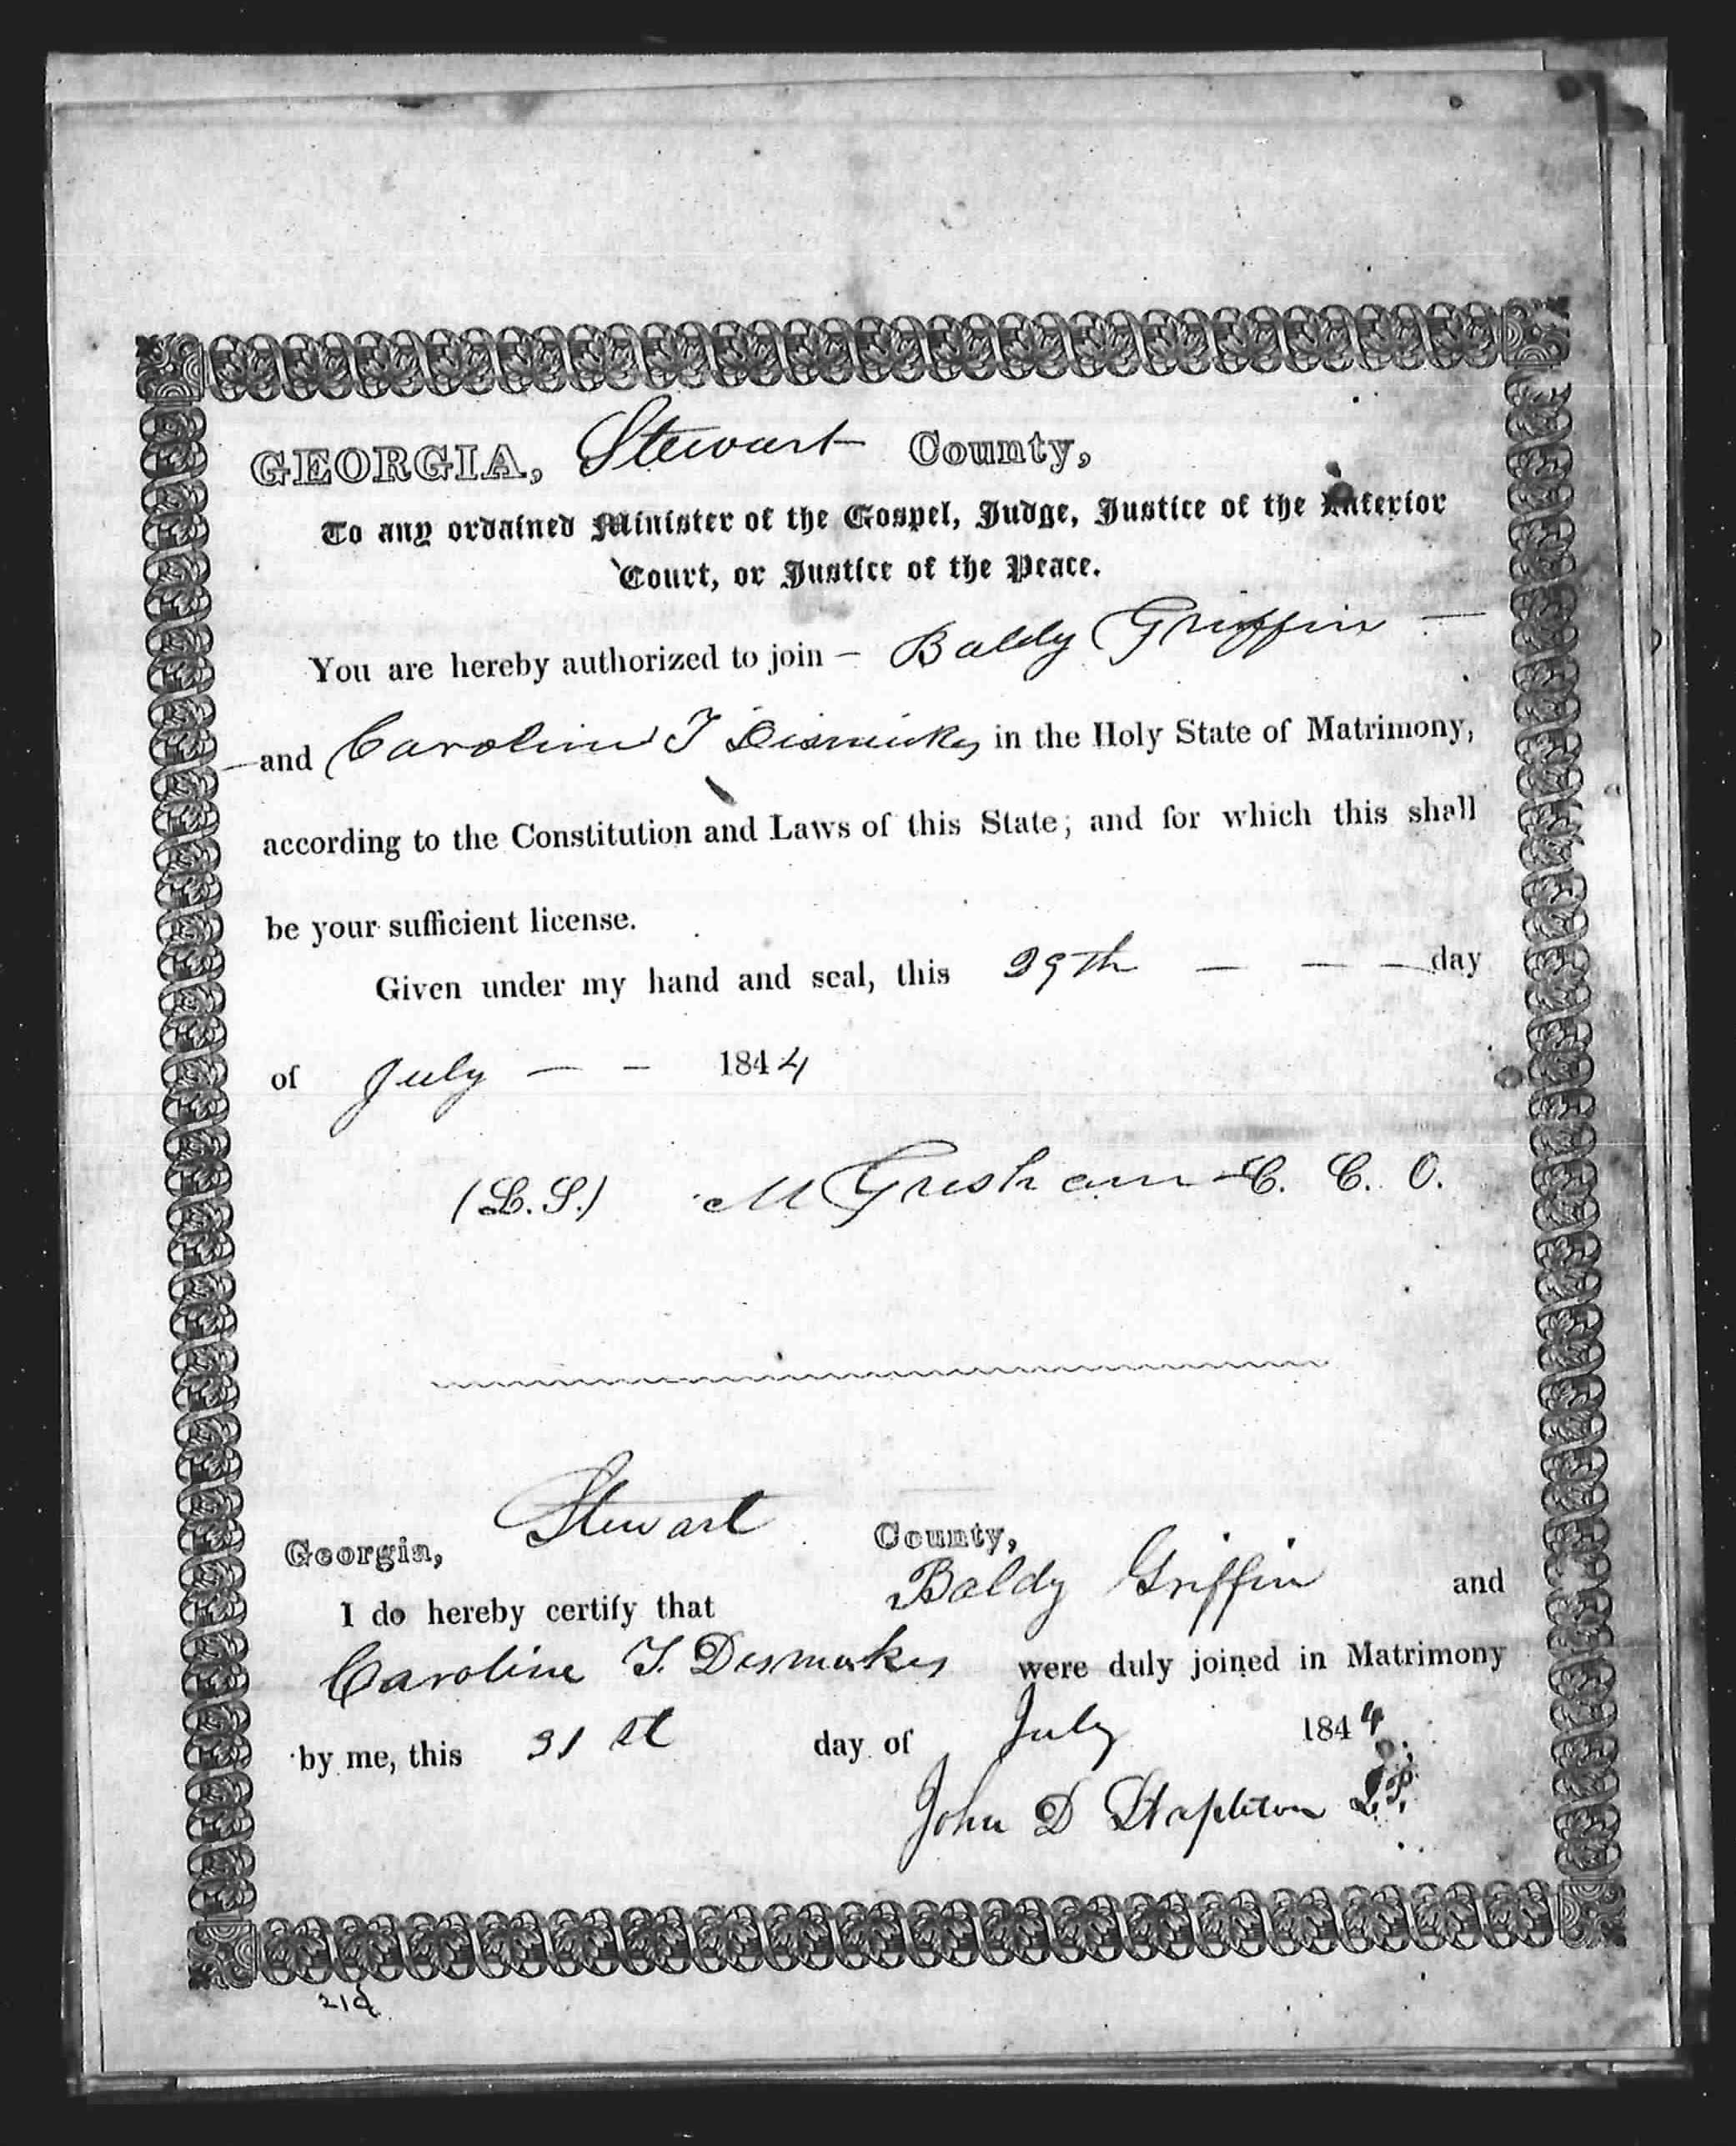 GEORGIA, Stewart County,
To any ordained Minister of the Gospel, Judge, Justice of the Inferior
Court, or Justice of the Peace.
You are hereby authorized to join – Baldy Griffin —
and Caroline T Dismukes in the Holy State of Matrimony,
according to the Constitution and Laws of this State; and for which this shall
be your sufficient license.
Given under my hand and seal, this 29th — — — day
of July — — 1844
(L.S.) M Gresham C. C. O.
Georgia, Stewart County,
I do hereby certify that Baldy Griffin and
Caroline T. Dismukes were duly joined in Matrimony
by me, this 31st day of July 1844
John D Stapleton J.P.